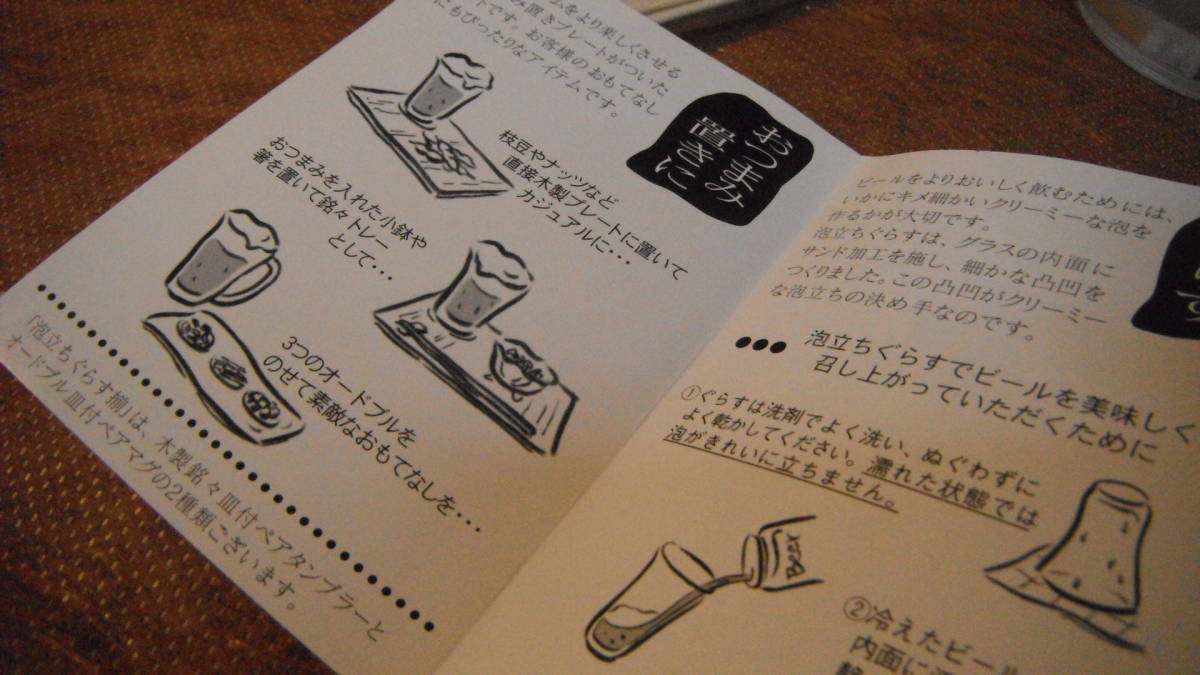 ムをより楽しくさせる
み置きプレートがついた
トです。お客様のおもてなし
にもぴったりなアイテムです。
おつまみ
置きに
枝豆やナッツなど
直接木製プレートに置いて
カジュアルに・・・
おつまみを入れた小鉢や
箸を置いて銘々トレー
として・・・
3つのオードブルを
のせて素敵なおもてなしを・・・
「泡立ちぐらす揃」は、木製銘々皿付ペアタンブラーと
オードブル皿付ペアマグの2種類ございます。
ビールをよりおいしく飲むためには、
いかにキメ細かいクリーミーな泡を
作るかが大切です。
泡立ちぐらすは、グラスの内面に
サンド加工を施し、細かな凸凹を
つくりました。この凸凹がクリーミー
な泡立ちの決め手なのです。
●●●泡立ちぐらすでビールを美味しく
召し上がっていただくために
①ぐらすは洗剤でよく洗い、ぬぐわずに
よく乾かしてください。濡れた状態では
泡がきれいに立ちません。
Beer
②冷えたビール
内面に